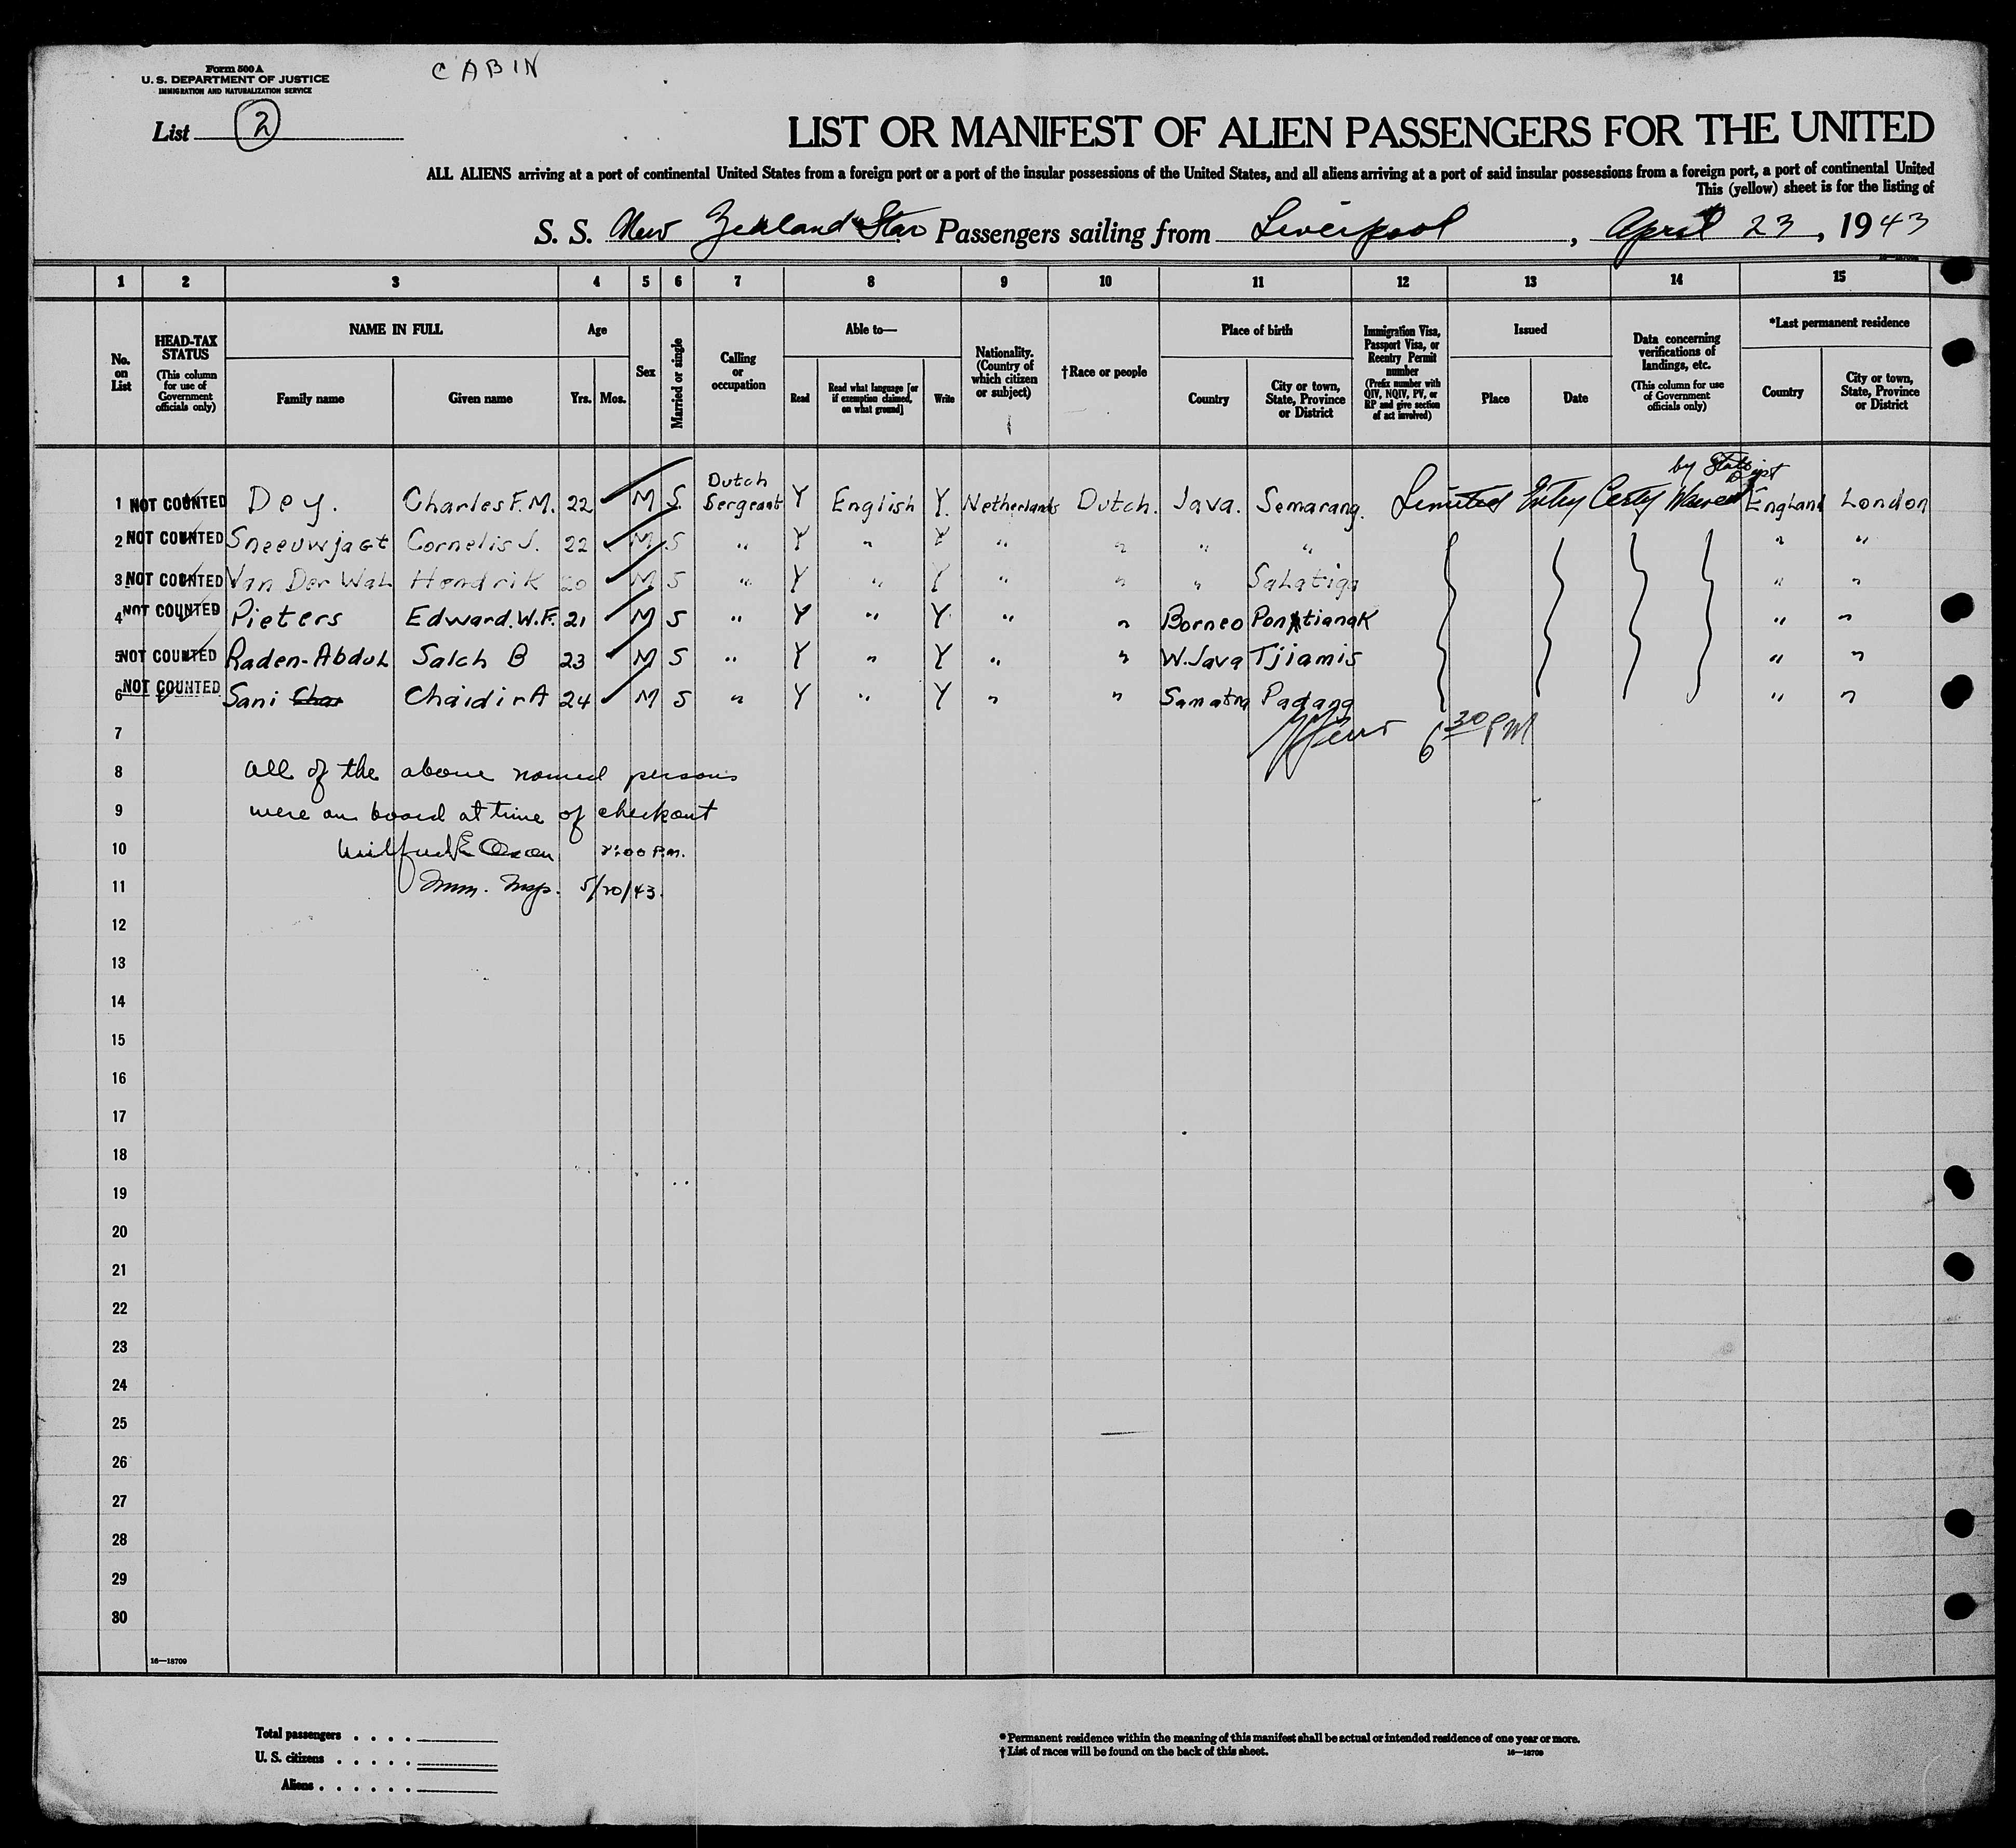 Form 500 A
U. S. DEPARTMENT OF JUSTICE
IMMIGRATION AND NATURALIZATION SERVICE
CABIN
List 2
LIST OR MANIFEST OF ALIEN PASSENGERS FOR THE UNITED
ALL ALIENS arriving at a port of continental United States from a foreign port or a port of the insular possessions of the United States, and all aliens arriving at a port of said insular possessions from a foreign port, a port of continental United
This (yellow) sheet is for the listing of
S. S. New Zealand Star Passengers sailing from Liverpool, April 23, 1943
1 2 3 4 5 6 7 8 9 10 11 12 13 14 15
No. on List
HEAD-TAX STATUS (This column for use of Government officials only)
NAME IN FULL
Family name
Given name
Age
Yrs. Mos.
Sex
Married or single
Calling or occupation
Able to—
Read
Read what language [or if exemption claimed, on what ground]
Write
Nationality. (Country of which citizen or subject)
†Race or people
Place of birth
Country
City or town, State, Province or District
Immigration Visa, Passport Visa, or Reentry Permit number (Prefix number with QIV, NQIV, PV, or RP and give section of act involved)
Issued
Place
Date
Data concerning verifications of landings, etc. (This column for use of Government officials only)
*Last permanent residence
Country
City or town, State, Province or District
1 NOT COUNTED Dey. Charles F. M. 22 M S. Dutch Sergeant Y English Y. Netherlands Dutch. Java. Semarang. Limited Entry Certf Waived by State Dept England London
2 NOT COUNTED Sneeuwjagt Cornelis J. 22 M S " Y " Y " " " " " "
3 NOT COUNTED Van Der Wal Hendrik 20 M S " Y " Y " " " Salatiga " "
4 NOT COUNTED Pieters Edward. W. F. 21 M S " Y " Y " " Borneo Pontianak " "
5 NOT COUNTED Raden-Abdul Saleh B 23 M S " Y " Y " " W. Java Tjiamis " "
6 NOT COUNTED Sani Chaidir A 24 M S " Y " Y " " Sumatra Padang " "
7 6 30 PM
8 All of the above named persons
9 were on board at time of checkout
10 Wilfred E :00 P.M.
11 Imm. Insp. 5/20/43.
12
13
14
15
16
17
18
19
20
21
22
23
24
25
26
27
28
29
30
16—18709
Total passengers . . . .
U. S. citizens . . . . .
Aliens . . . . . .
* Permanent residence within the meaning of this manifest shall be actual or intended residence of one year or more.
† List of races will be found on the back of this sheet. 16—18709